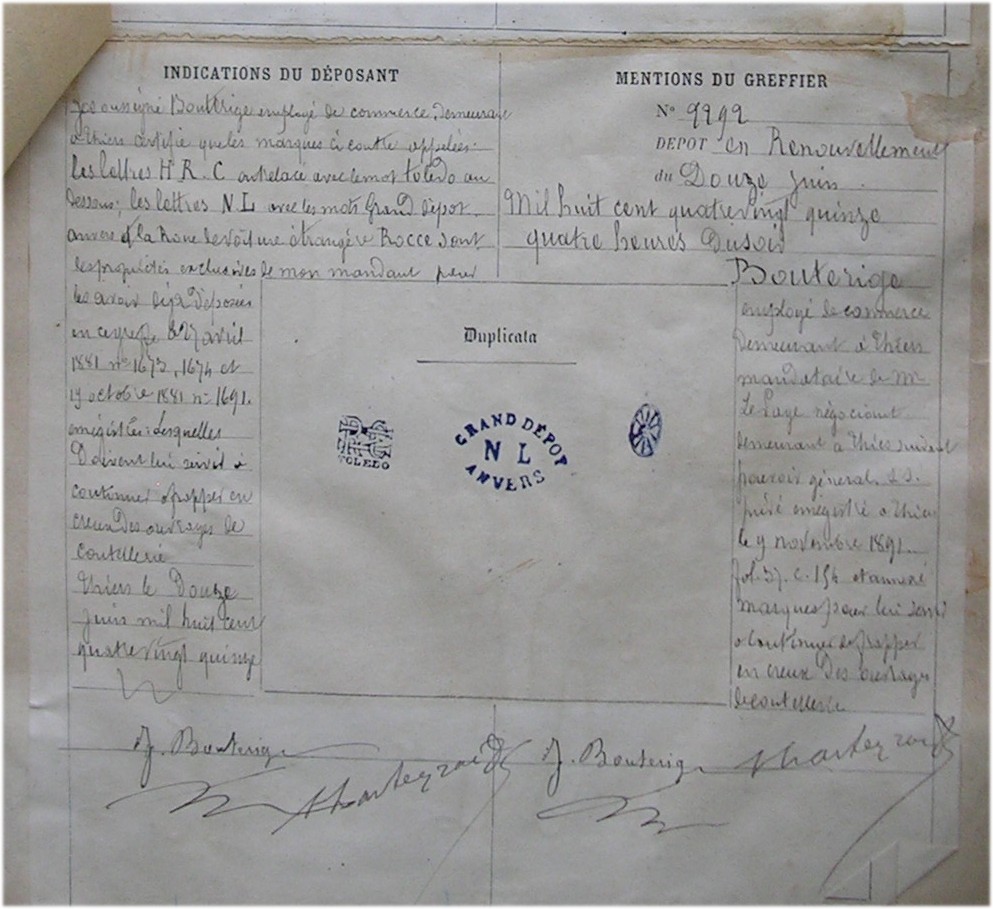 INDICATIONS DU DÉPOSANT
Je soussigné Bouterige employé de commerce, demeurant
à Thiers certifie que les marques ci contre appelées:
les lettres H R C entrelacé avec le mot Toledo au
dessous; les lettres N L avec les mots Grand Dépot
anvers & la Roue de voiture étrangère Rocce sont
les propriétés exclusives de mon mandant pour
les avoir déjà déposées
en ce greffe le 27 avril
1881 nos 1673, 1674 et
19 octobre 1881 no 1691.
enregistrées: lesquelles
Doivent lui servir à
continuer à frapper en
creux Des ouvrages de
coutellerie
Thiers le Douze
juin mil huit cent
quatrevingt quinze
Duplicata
TOLEDO
GRAND DÉPÔT
N L
ANVERS
MENTIONS DU GREFFIER
No 2292
DÉPOT en Renouvellement
du Douze juin
Mil huit cent quatrevingt quinze
quatre heures Du soir
Bouterige
employé de commerce
Demeurant à Thiers
mandataire de Mr
Le Page négociant
demeurant à Thiers suivant
pouvoir général S S.
privé enregistré à Thiers
le 9 novembre 1891
fol. 37. c. 154 et annexé
marques pour lui servir
à continuer de frapper
en creux Des ouvrages
de coutellerie
J. Bouterige
J. Bouterige